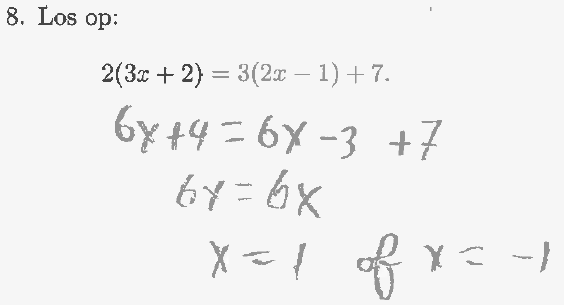 8. Los op:
2(3x + 2) = 3(2x − 1) + 7.
6x+4 = 6x -3 +7
6x = 6x
x = 1 of x = -1